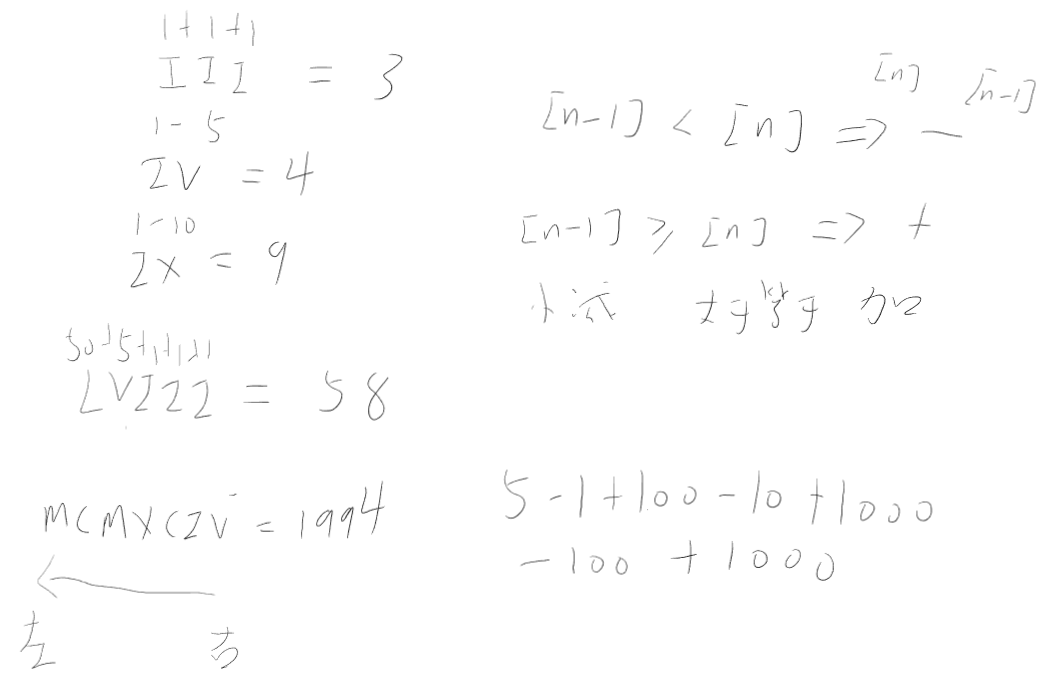 1+1+1
III = 3
1-5
IV = 4
1-10
IX = 9
50+5+1+1+1
LVIII = 58
MCMXCIV = 1994
左 右
[n] [n-1]
[n-1] < [n] => -
[n-1] ≥ [n] => +
小减 大于等于 加
5-1+100-10+1000
-100+1000